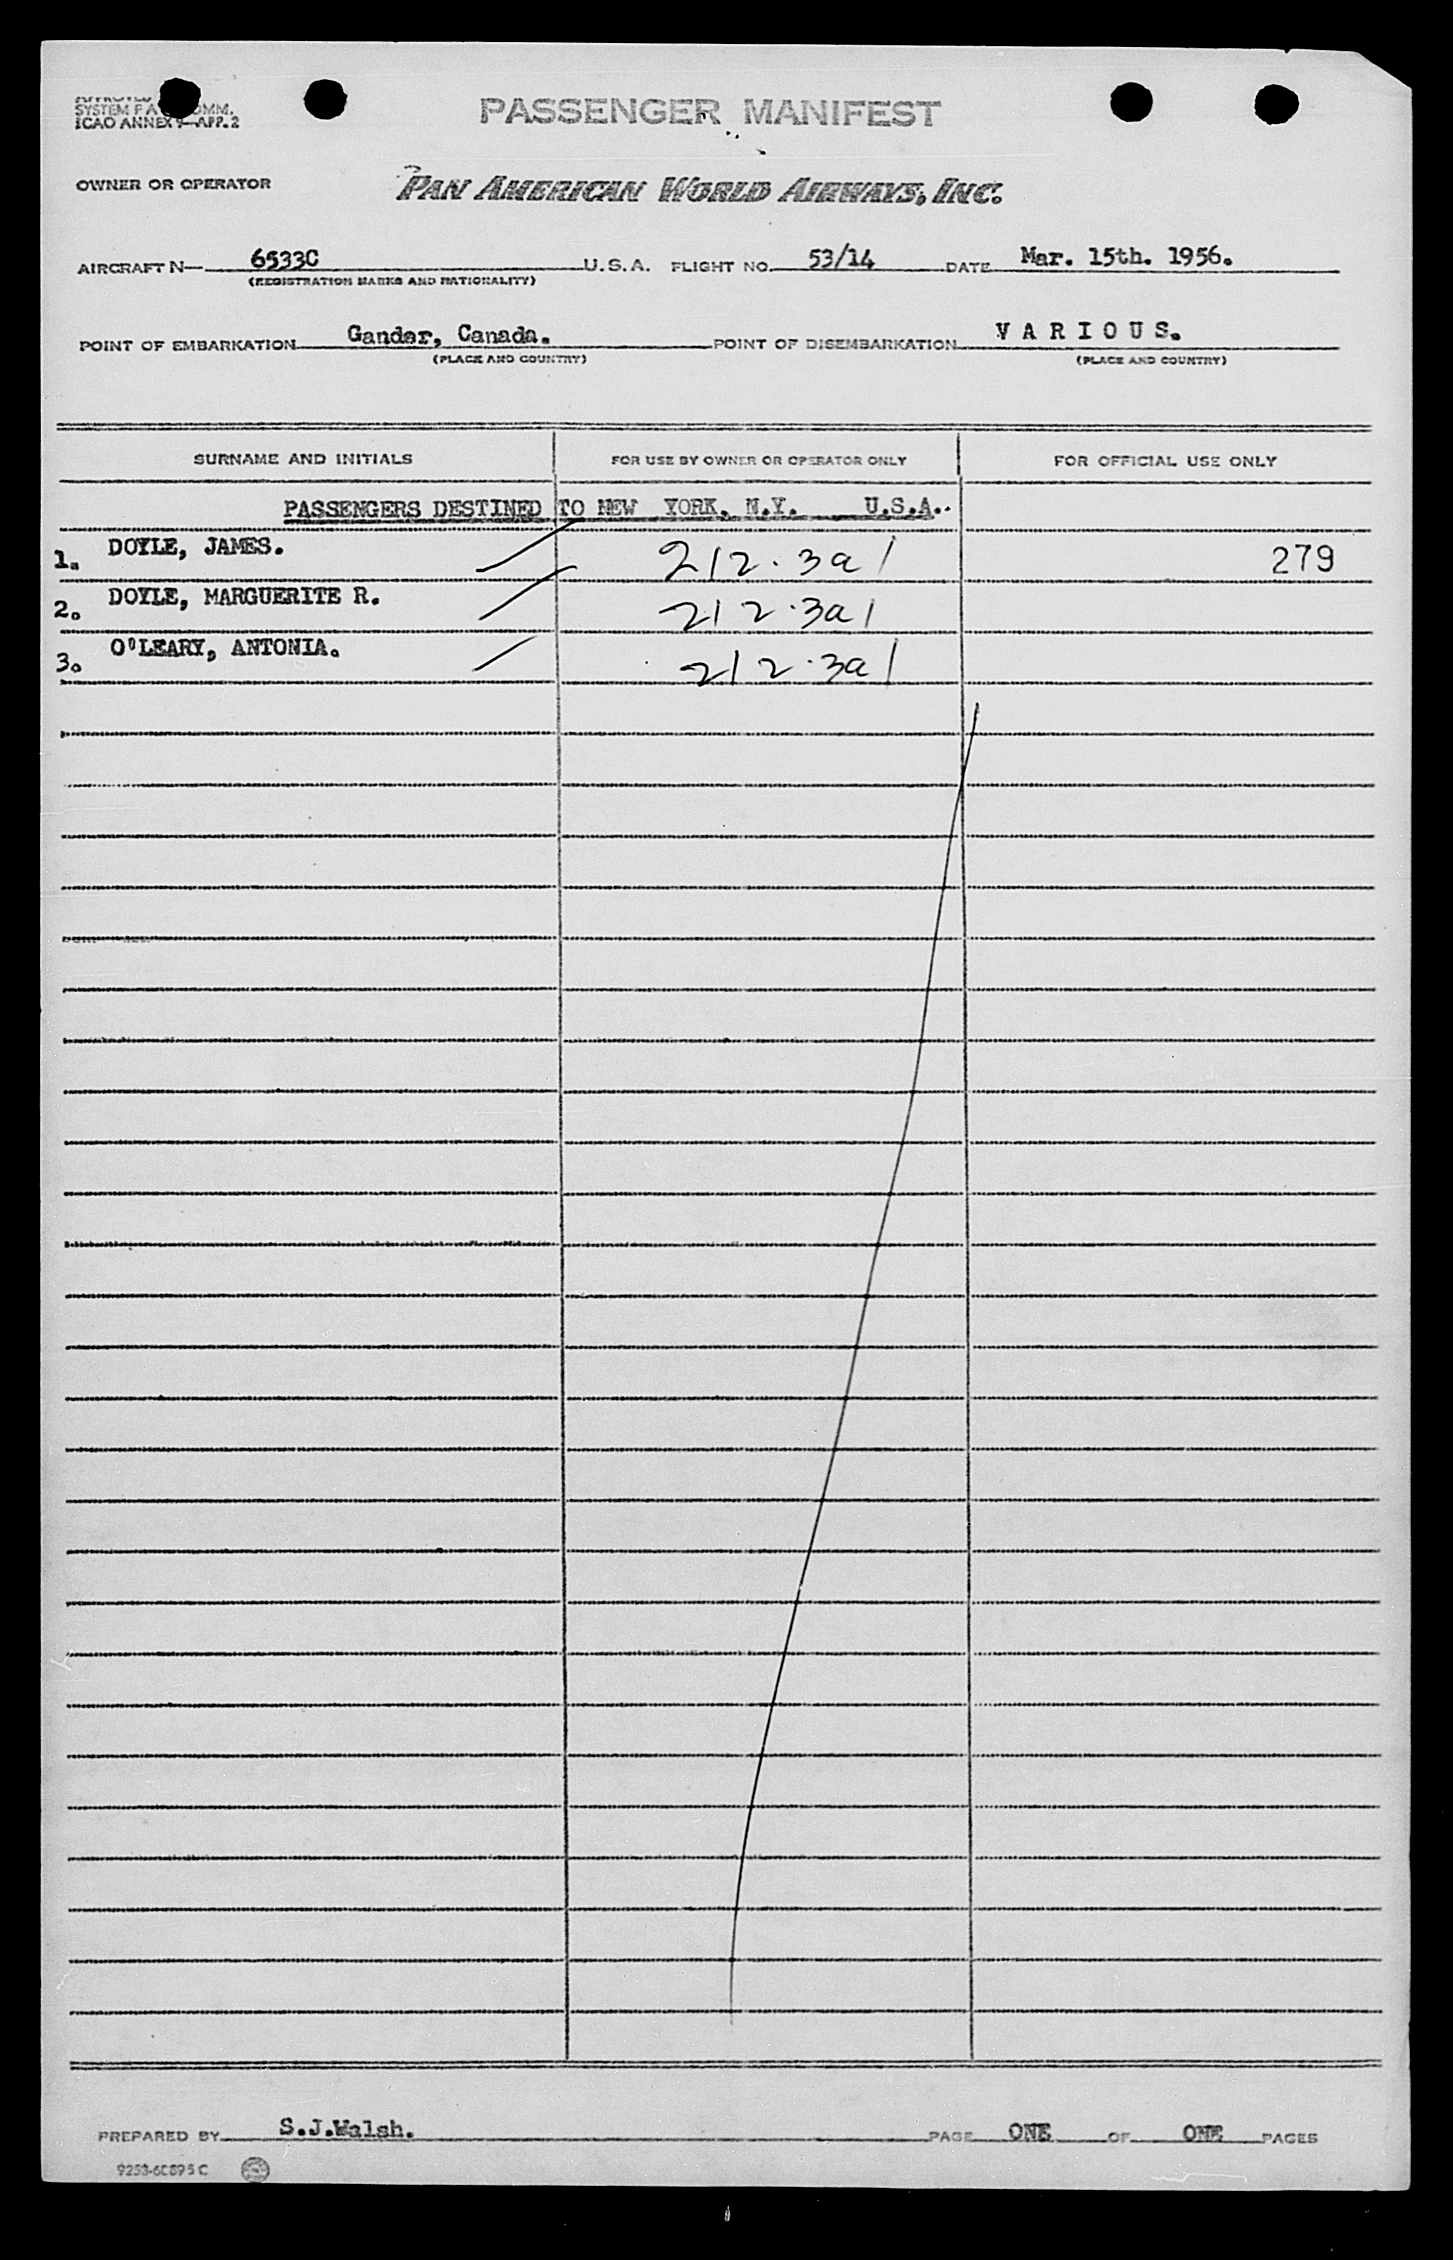 SYSTEM F A COMM.
ICAO ANNEX 9—APP. 2
PASSENGER MANIFEST
OWNER OR OPERATOR PAN AMERICAN WORLD AIRWAYS, INC.
AIRCRAFT N— 6533C U.S.A. FLIGHT NO. 53/14 DATE Mar. 15th. 1956.
(REGISTRATION MARKS AND NATIONALITY)
POINT OF EMBARKATION Gander, Canada. POINT OF DISEMBARKATION V A R I O U S.
(PLACE AND COUNTRY) (PLACE AND COUNTRY)
SURNAME AND INITIALS FOR USE BY OWNER OR OPERATOR ONLY FOR OFFICIAL USE ONLY
PASSENGERS DESTINED TO NEW YORK, N.Y. U.S.A.
1. DOYLE, JAMES. 212.3a1 279
2. DOYLE, MARGUERITE R. 212.3a1
3. O'LEARY, ANTONIA. 212.3a1
PREPARED BY S.J.Walsh. PAGE ONE OF ONE PAGES